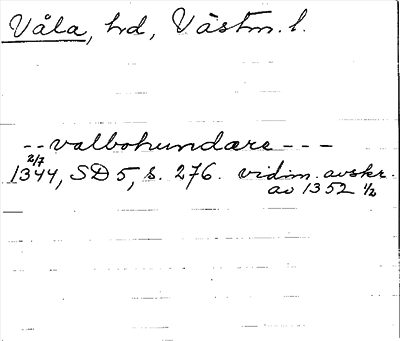 Våla, hd, Västm. l.
-- valbohundære ---
2/7
1344, SD 5, s. 276. vidim. avskr.
av 1352 1/2